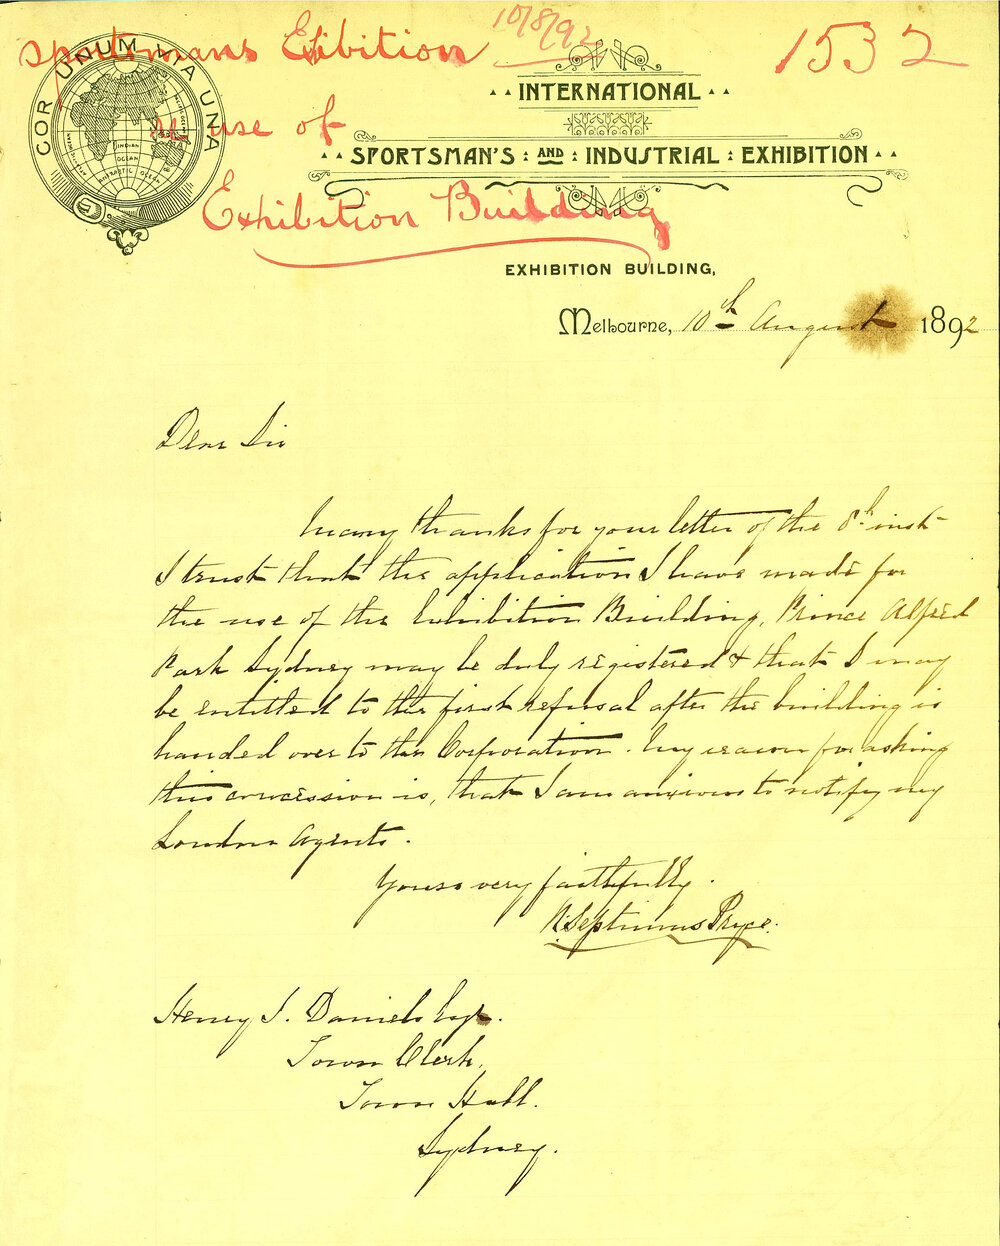 Sportsmans Exibition
10/8/92
1532
re use of
Exhibition Building
COR UNUM VIA UNA
INDIAN OCEAN
ANTARCTIC OCEAN
INTERNATIONAL
SPORTSMAN'S : AND : INDUSTRIAL : EXHIBITION
EXHIBITION BUILDING,
Melbourne, 10th August 1892
Dear Sir
Many thanks for your letter of the 8th inst
I trust that the application I have made for
the use of the Exhibition Building, Prince Alfred
Park Sydney may be duly registered & that I may
be entitled to the first refusal after the building is
handed over to the Corporation. My reason for asking
this concession is, that I am anxious to notify my
London Agents.
Yours very faithfully.
N. Septimus Pryce.
Henry J. Daniels Esqr.
Town Clerk,
Town Hall.
Sydney.